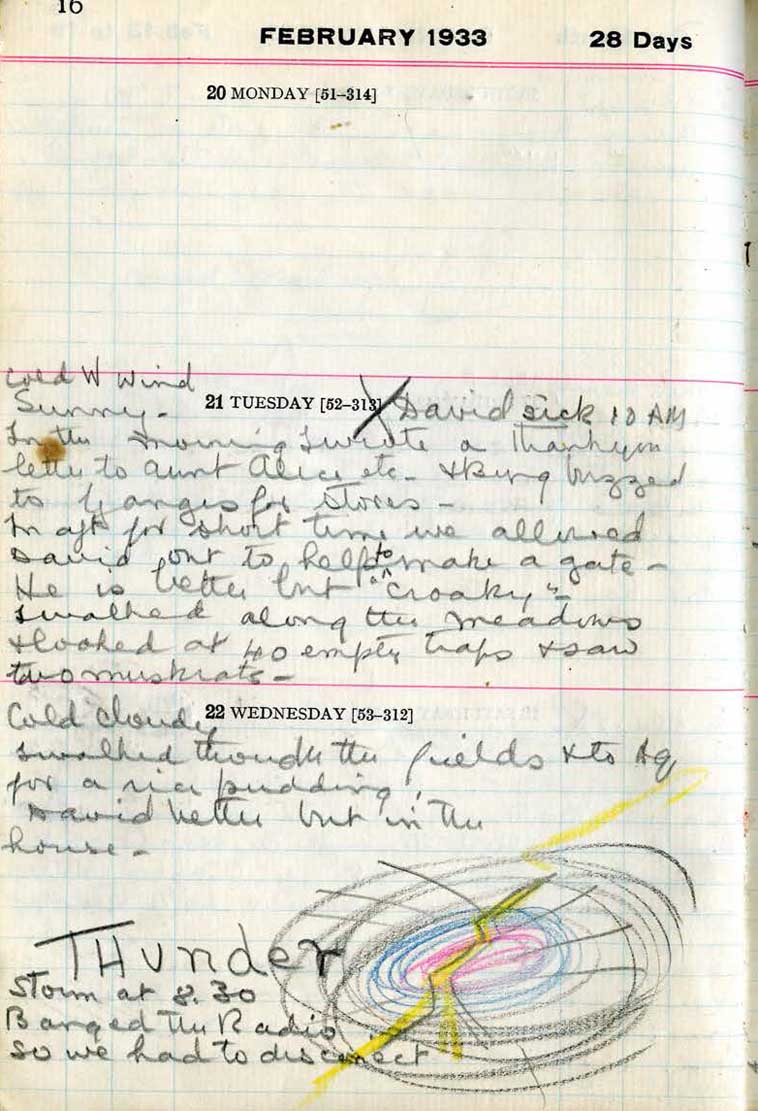 16
FEBRUARY 1933 28 Days
20 MONDAY [51–314]
Cold W Wind
Sunny -
21 TUESDAY [52–313] X David sick 10 AM
In the morning I wrote a thankyou
letter to Aunt Alice etc - & buzzed
to Ganges for stores -
In aft for short time we allowed
David out to help to make a gate -
He is better but "croaky" -
I walked along the meadows
& looked at 40 empty traps & saw
two muskrats -
Cold cloudy
22 WEDNESDAY [53–312]
I walked through the fields & to
for a rice pudding!
David better but in the
house -
THunder
Storm at 8.30
Banged the Radio
so we had to disconect